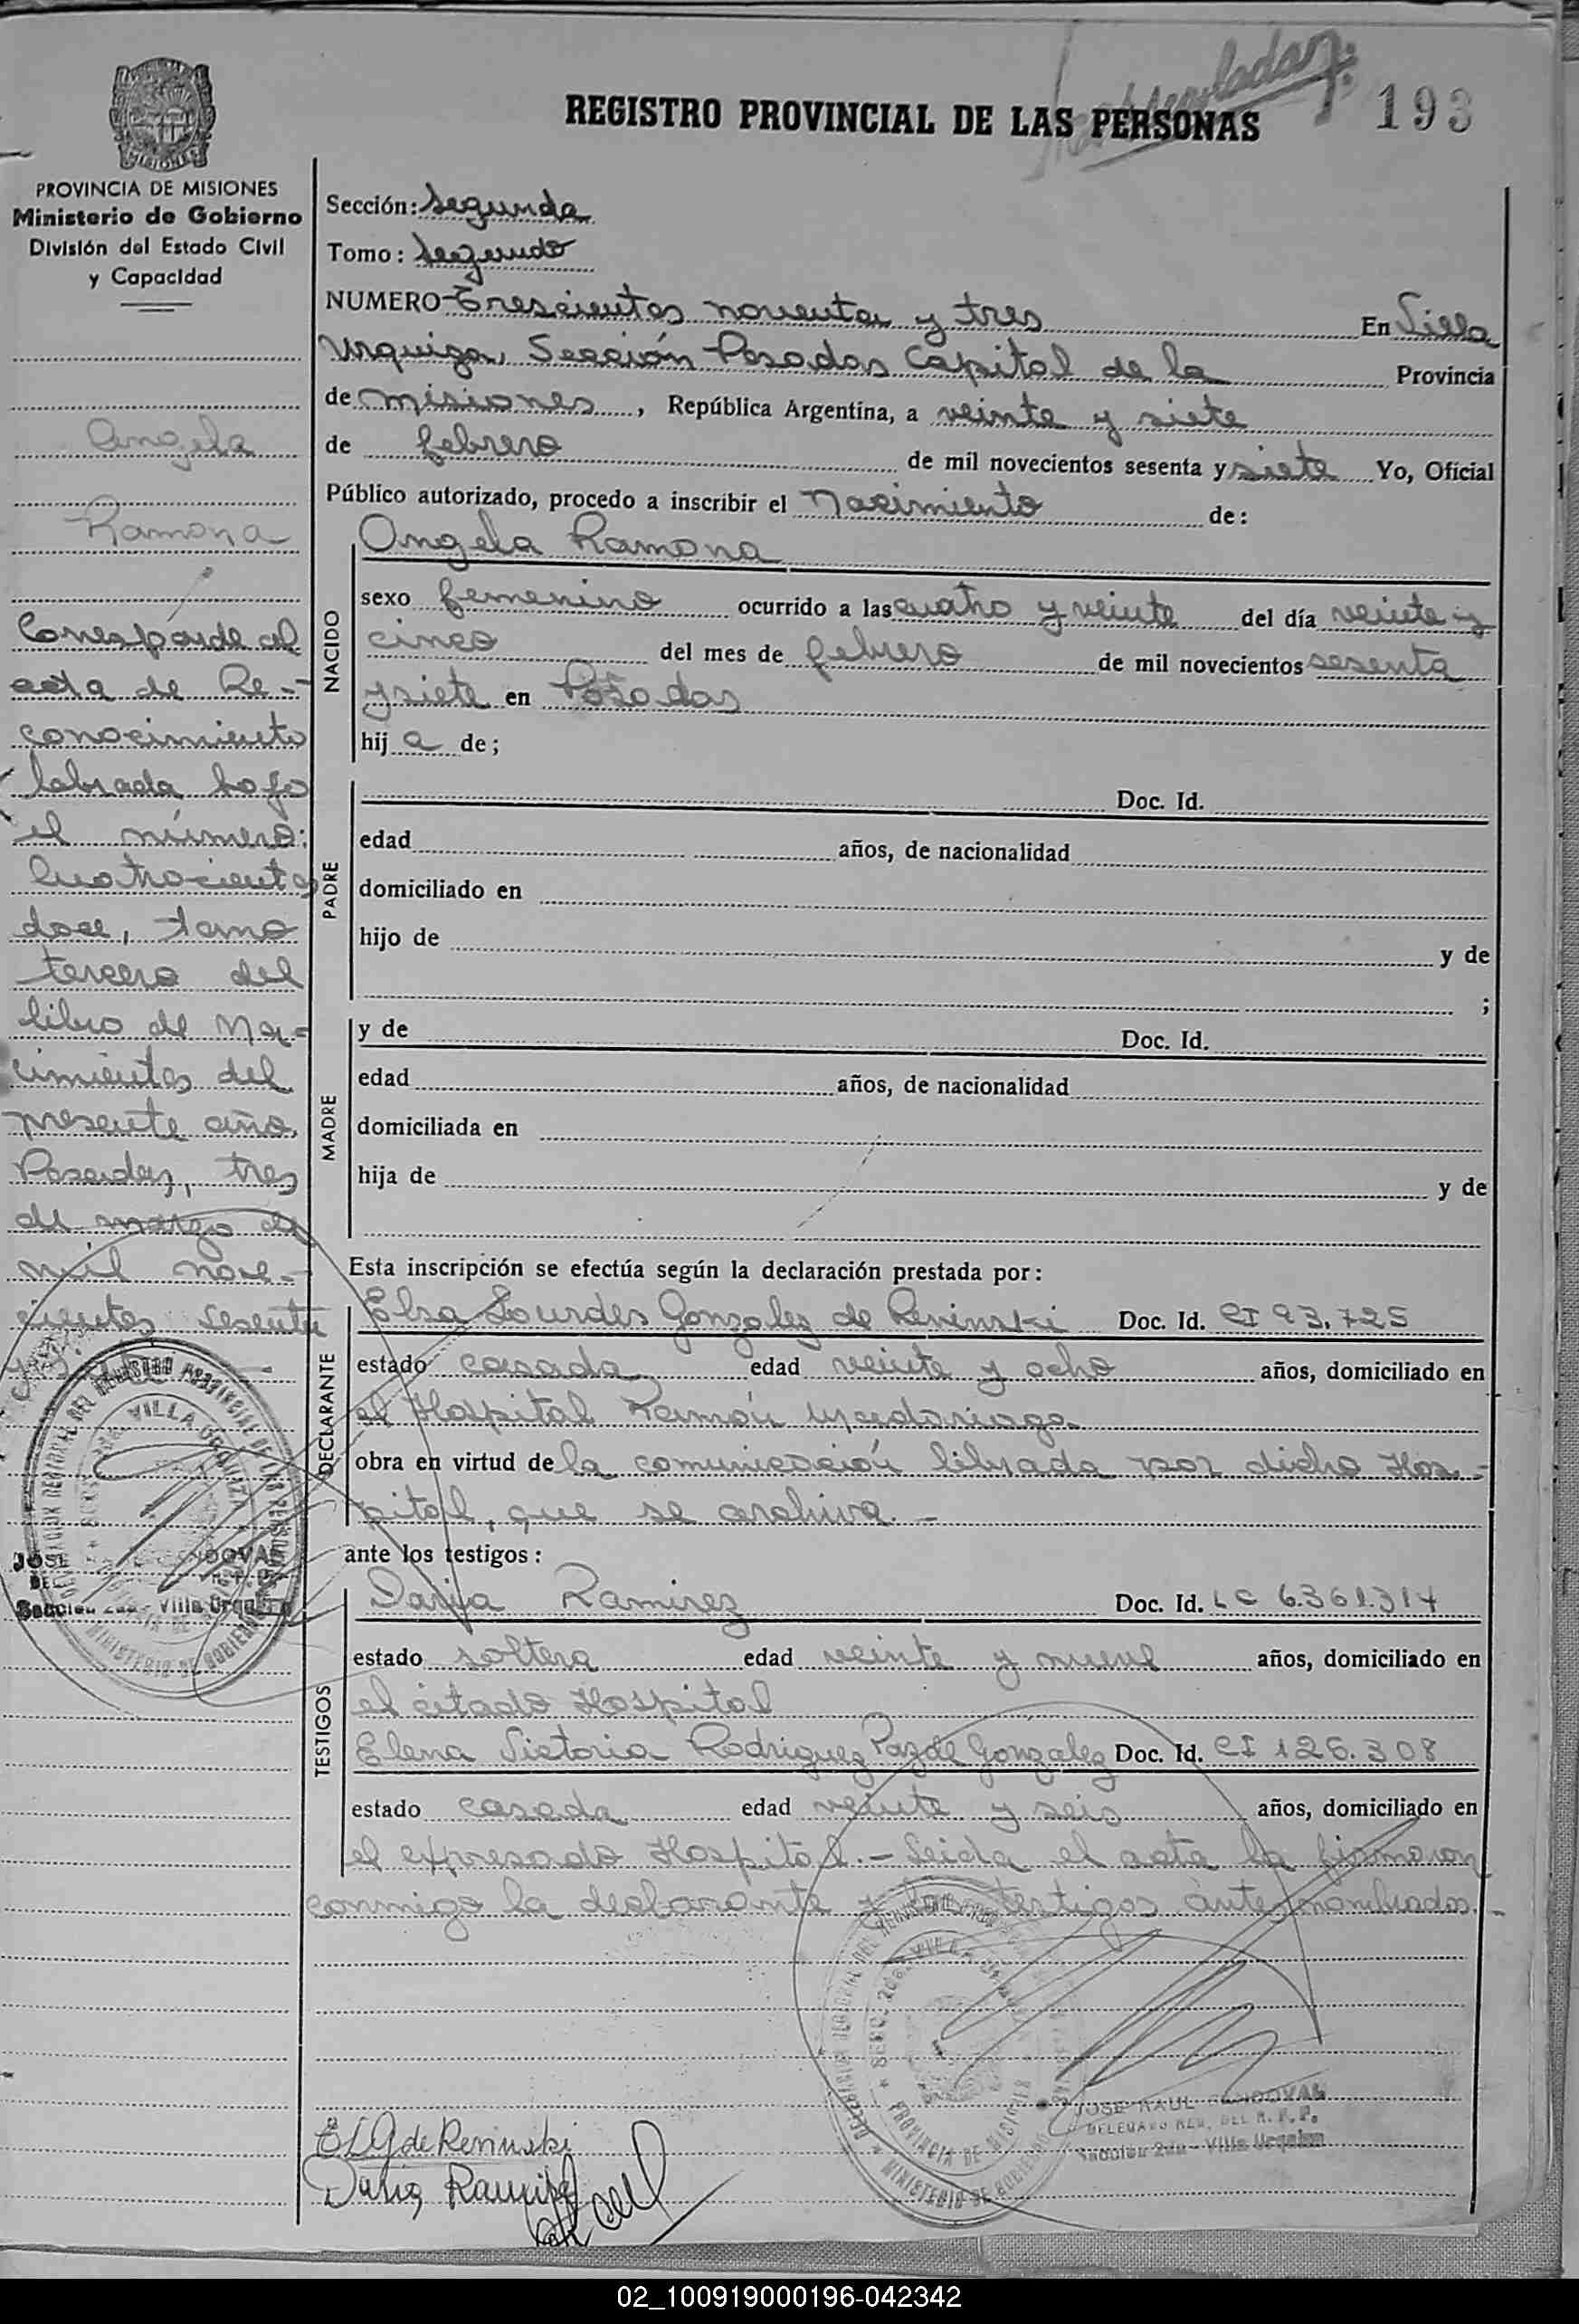 REGISTRO PROVINCIAL DE LAS PERSONAS
193
MISIONES
PROVINCIA DE MISIONES
Ministerio de Gobierno
División del Estado Civil
y Capacidad
Angela
Ramona
Corresponde al
acta de Re-
conocimiento
labrada bajo
el número:
Cuatrocientos
doce, tomo
tercero del
libro de Na-
cimientos del
presente año.
Posadas, tres
de marzo de
mil nove-
cientos sesenta
y siete
Sección: Segunda
Tomo: Segundo
NUMERO Trescientos noventa y tres En Villa
Urquiza, Sección Posadas Capital de la Provincia
de misiones, República Argentina, a veinte y siete
de febrero de mil novecientos sesenta y siete Yo, Oficial
Público autorizado, procedo a inscribir el Nacimiento de:
NACIDO
Angela Ramona
sexo femenino ocurrido a las cuatro y veinte del día veinte y
cinco del mes de febrero de mil novecientos sesenta
y siete en Posadas
hij a de;
PADRE
Doc. Id.
edad años, de nacionalidad
domiciliado en
hijo de y de
;
MADRE
y de Doc. Id.
edad años, de nacionalidad
domiciliada en
hija de y de
Esta inscripción se efectúa según la declaración prestada por:
DECLARANTE
Elsa Lourdes Gonzalez de Reninski Doc. Id. CI 93.725
estado casada edad veinte y ocho años, domiciliado en
el Hospital Ramón Madariaga
obra en virtud de la comunicación librada por dicho Hos-
pital, que se archiva.-
ante los testigos:
TESTIGOS
Darija Ramirez Doc. Id. LC 6.361.314
estado soltera edad veinte y nueve años, domiciliado en
el citado Hospital
Elena Victoria Rodriguez Paz de Gonzalez Doc. Id. CI 126.308
estado casada edad veinte y seis años, domiciliado en
el expresado Hospital.- Leida el acta la firmaron
conmigo la declarante y los testigos antes nombrados.-
JOSE RAUL SANDOVAL
DELEGADO REG. DEL R. P. P.
Sección 2da - Villa Urquiza
E L G de Reninski
Darija Ramirez
02_100919000196-042342